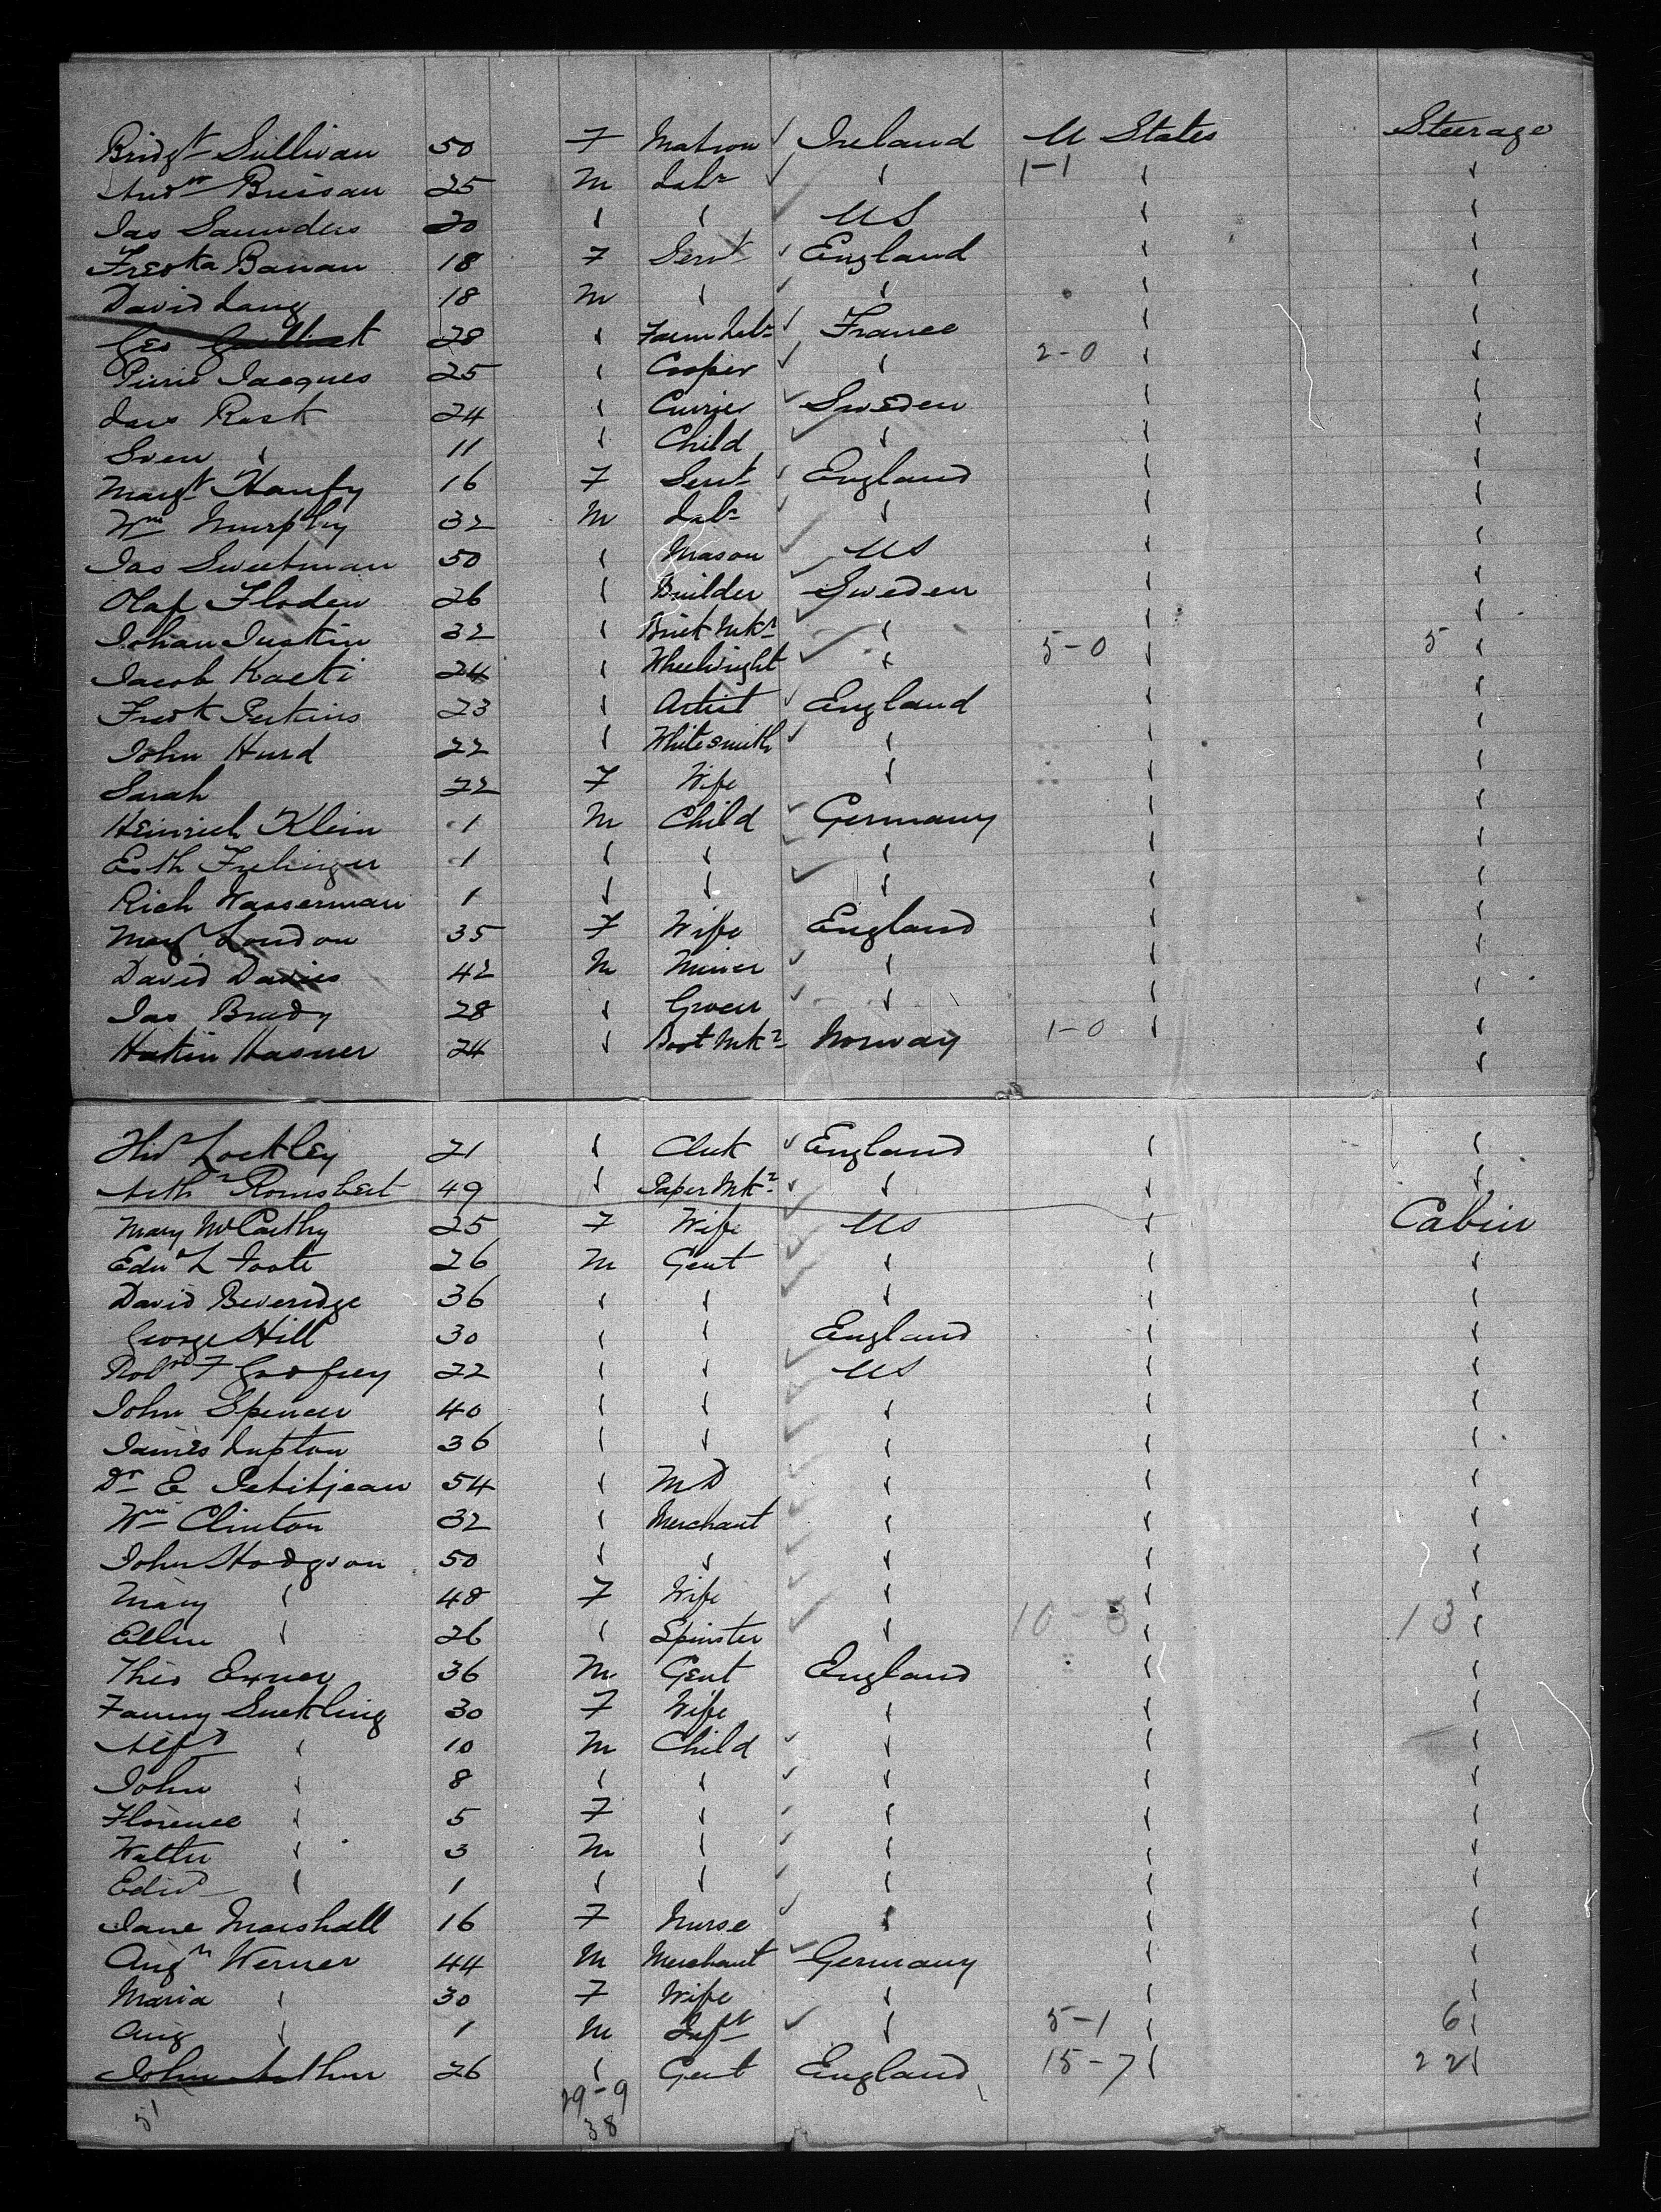 Bridgt Sullivan 50 F Matron Ireland U States Steerage
Andw Brisau 25 M Labr " 1-1 " "
Jas Saunders 20 " " US " "
Fredka Banan 18 F Servt England " "
David Lang 18 M " " " "
Geo 28 " Farm Labr France " "
Pierre Jacques 25 " Cooper " 2-0 " "
Lars Rask 24 " Currier Sweden " "
Sven " 11 " Child " " "
Margt Hanfy 16 F Servt England " "
Wm Murphy 32 M Labr " " "
Jas Sweetman 50 " Mason US " "
Olaf Floden 26 " Builder Sweden " "
Johan Justin 32 " Brick Mkr " " "
Jacob Kaeti 24 " Wheelwright " 5-0 " 5 "
Fredk Perkins 23 " Artist England " "
John Hurd 22 " Whitesmith " " "
Sarah 22 F Wife " " "
Heinrich Klein 1 M Child Germany " "
Esth 1 " " " " "
Rich Wasserman 1 " " " " "
Margt London 35 F Wife England " "
David Davies 42 M Miner " " "
Jas Brady 28 " Grocer " " "
Hakin Hasner 24 " Boot Mkr Norway 1-0 " "
Lockley 21 " Clerk England " "
Arthr Romsbert 49 " Paper Mkr " " "
Mary McCarthy 25 F Wife US " Cabin
Edw L Foote 26 M Gent " " "
David Beveridge 36 " " " " "
George Hill 30 " " England " "
Robt F Godfrey 22 " " US " "
John Spencer 40 " " " " "
James Lupton 36 " " " " "
Dr E Petitjean 54 " MD " " "
Wm Clinton 32 " Merchant " " "
John Hodgson 50 " " " " "
Mary " 48 F Wife " " "
Ellen " 26 " Spinster " 10-3 " 13 "
Theo Exner 36 M Gent England " "
Fanny Suckling 30 F Wife " " "
Alfd " 10 M Child " " "
John " 8 " " " " "
Florence " 5 F " " " "
Walter " 3 M " " " "
Edwd " 1 " " " " "
Jane Marshall 16 F Nurse " " "
Augn Werner 44 M Merchant Germany " "
Maria " 30 F Wife " " "
Aug " 1 M Inft " 5-1 " 6 "
John Arthur 26 " Gent England 15-7 " 22 "
51 29-9
38